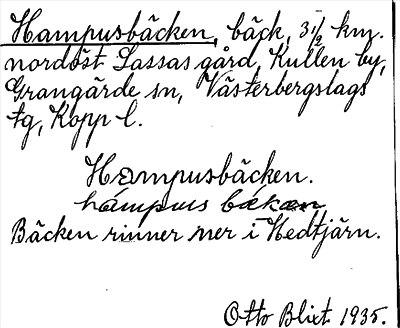 Hampusbäcken, bäck, 3½ km.
nordöst Lassas gård, Kullen by,
Grangärde sn, Västerbergslags
tg, Kopp l.
Hampusbäcken.
hampus bäkæn
Bäcken rinner ner i Hedtjärn.
Otto Blixt 1935.